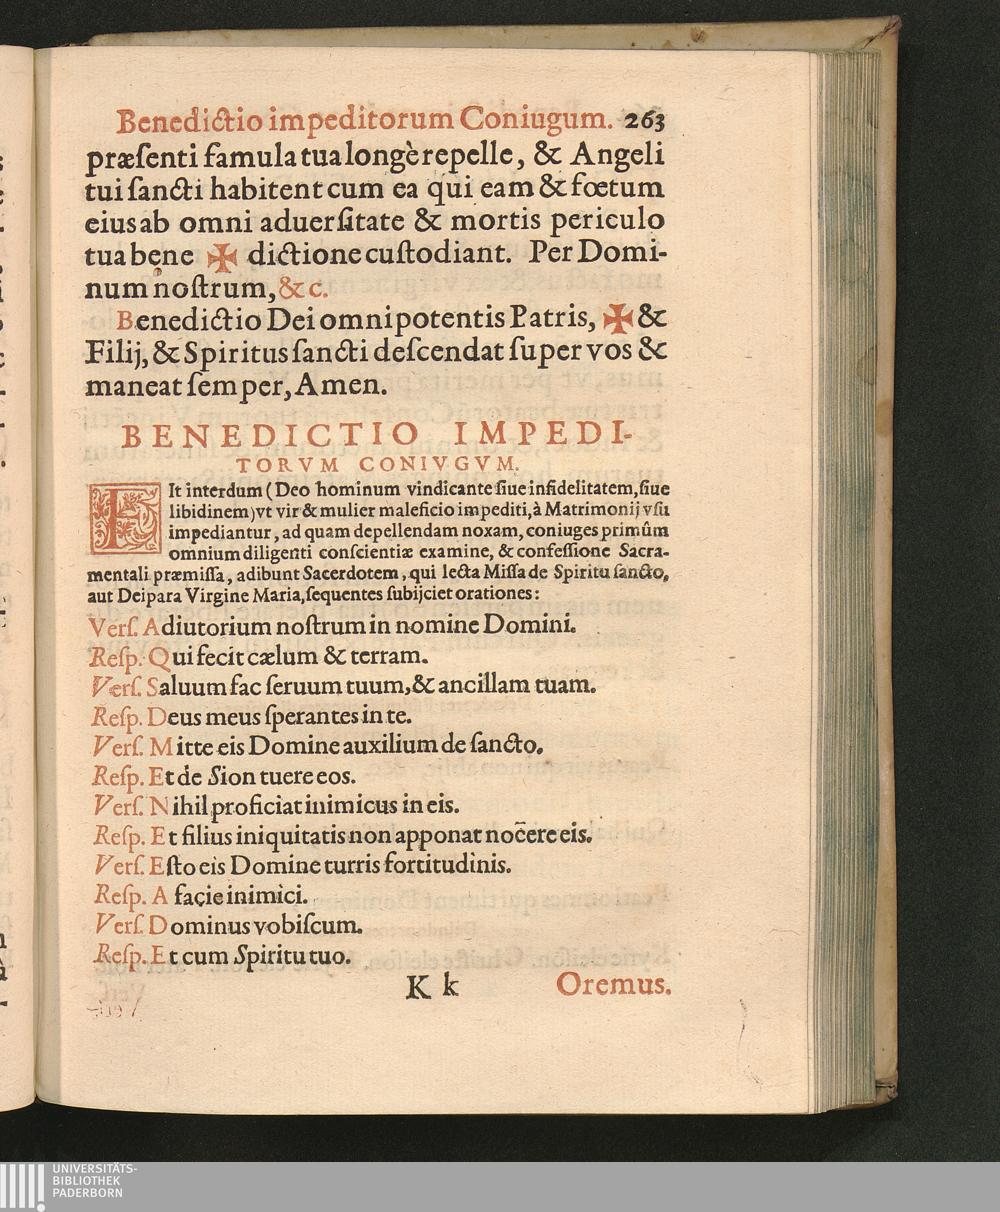 Benedictio impeditorum Coniugum. 263
præſenti famula tua longè repelle, & Angeli
tui ſancti habitent cum ea qui eam & fœtum
eius ab omni aduerſitate & mortis periculo
tua bene ✠ dictione cuſtodiant. Per Domi-
num noſtrum, &c.
Benedictio Dei omnipotentis Patris, ✠ &
Filij, & Spiritus ſancti deſcendat ſuper vos &
maneat ſemper, Amen.
BENEDICTIO IMPEDI-
TORVM CONIVGVM.
FIt interdum (Deo hominum vindicante ſiue infidelitatem, ſiue
libidinem) vt vir & mulier maleficio impediti, à Matrimonij vſu
impediantur, ad quam depellendam noxam, coniuges primûm
omnium diligenti conſcientiæ examine, & confeſſione Sacra-
mentali præmiſſa, adibunt Sacerdotem, qui lecta Miſſa de Spiritu ſancto,
aut Deipara Virgine Maria, ſequentes ſubijciet orationes:
Verſ. Adiutorium noſtrum in nomine Domini.
Reſp. Qui fecit cælum & terram.
Verſ. Saluum fac ſeruum tuum, & ancillam tuam.
Reſp. Deus meus ſperantes in te.
Verſ. Mitte eis Domine auxilium de ſancto.
Reſp. Et de Sion tuere eos.
Verſ. Nihil proficiat inimicus in eis.
Reſp. Et filius iniquitatis non apponat nocere eis.
Verſ. Eſto eis Domine turris fortitudinis.
Reſp. A facie inimici.
Verſ. Dominus vobiſcum.
Reſp. Et cum Spiritu tuo.
K k Oremus.
UNIVERSITÄTS-
BIBLIOTHEK
PADERBORN